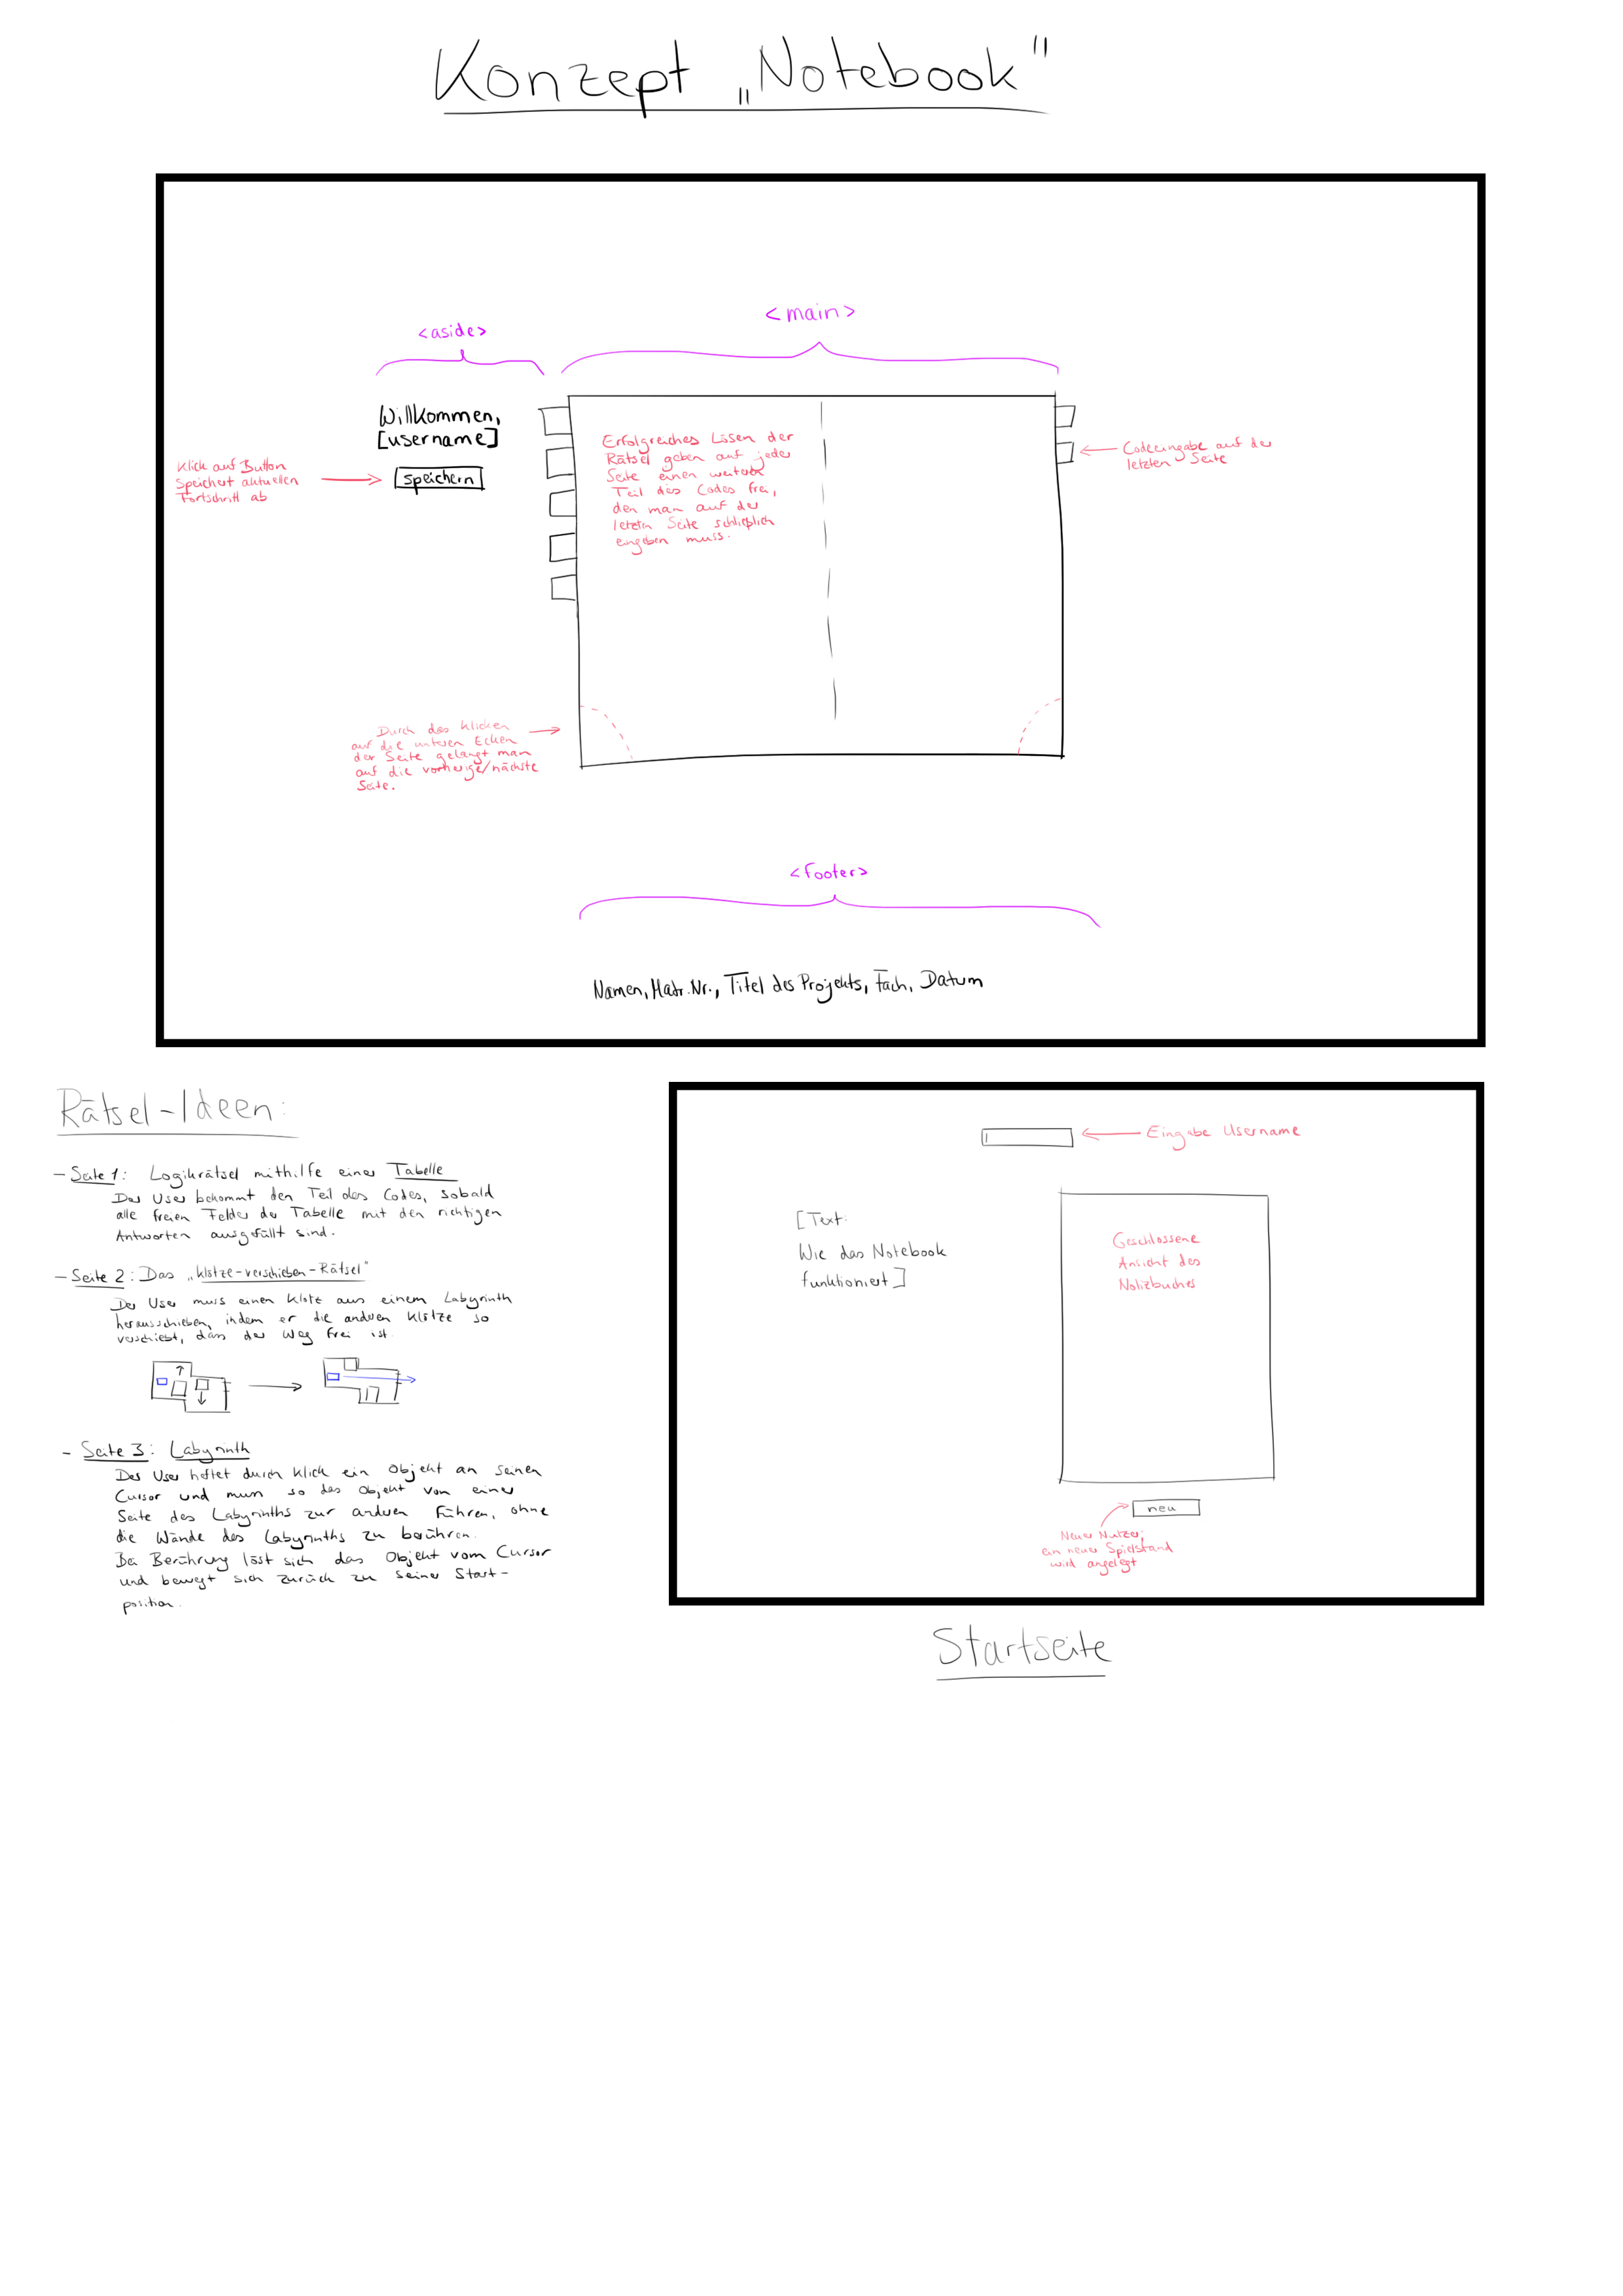 Konzept „Notebook"
<main>
<aside>
Willkommen,
[username]
speichern
Klick auf Button
Speichert aktuellen
Fortschritt ab
Erfolgreiches Lösen der
Rätsel geben auf jeder
Seite einen weiteren
Teil des Codes frei,
den man auf der
letzten Seite schließlich
eingeben muss.
Codeeingabe auf der
letzten Seite
Durch das Klicken
auf die unteren Ecken
der Seite gelangt man
auf die vorherige/nächste
Seite.
<footer>
Namen, Matr.Nr., Titel des Projekts, Fach, Datum
Rätsel-Ideen:
- Seite 1: Logikrätsel mithilfe einer Tabelle
Der User bekommt den Teil des Codes, sobald
alle freien Felder der Tabelle mit den richtigen
Antworten ausgefüllt sind.
- Seite 2: Das „Klötze-verschieben-Rätsel"
Der User muss einen Klotz aus einem Labyrinth
herausschieben, indem er die anderen Klötze so
verschiebt, dass der Weg frei ist.
- Seite 3: Labyrinth
Der User heftet durch Klick ein Objekt an seinen
Cursor und muss so das Objekt von einer
Seite des Labyrinths zur anderen führen, ohne
die Wände des Labyrinths zu berühren.
Bei Berührung löst sich das Objekt vom Cursor
und bewegt sich zurück zu seiner Start-
position.
Eingabe Username
[Text:
Wie das Notebook
funktioniert]
Geschlossene
Ansicht des
Notizbuches
neu
Neuer Nutzer;
ein neuer Spielstand
wird angelegt
Startseite